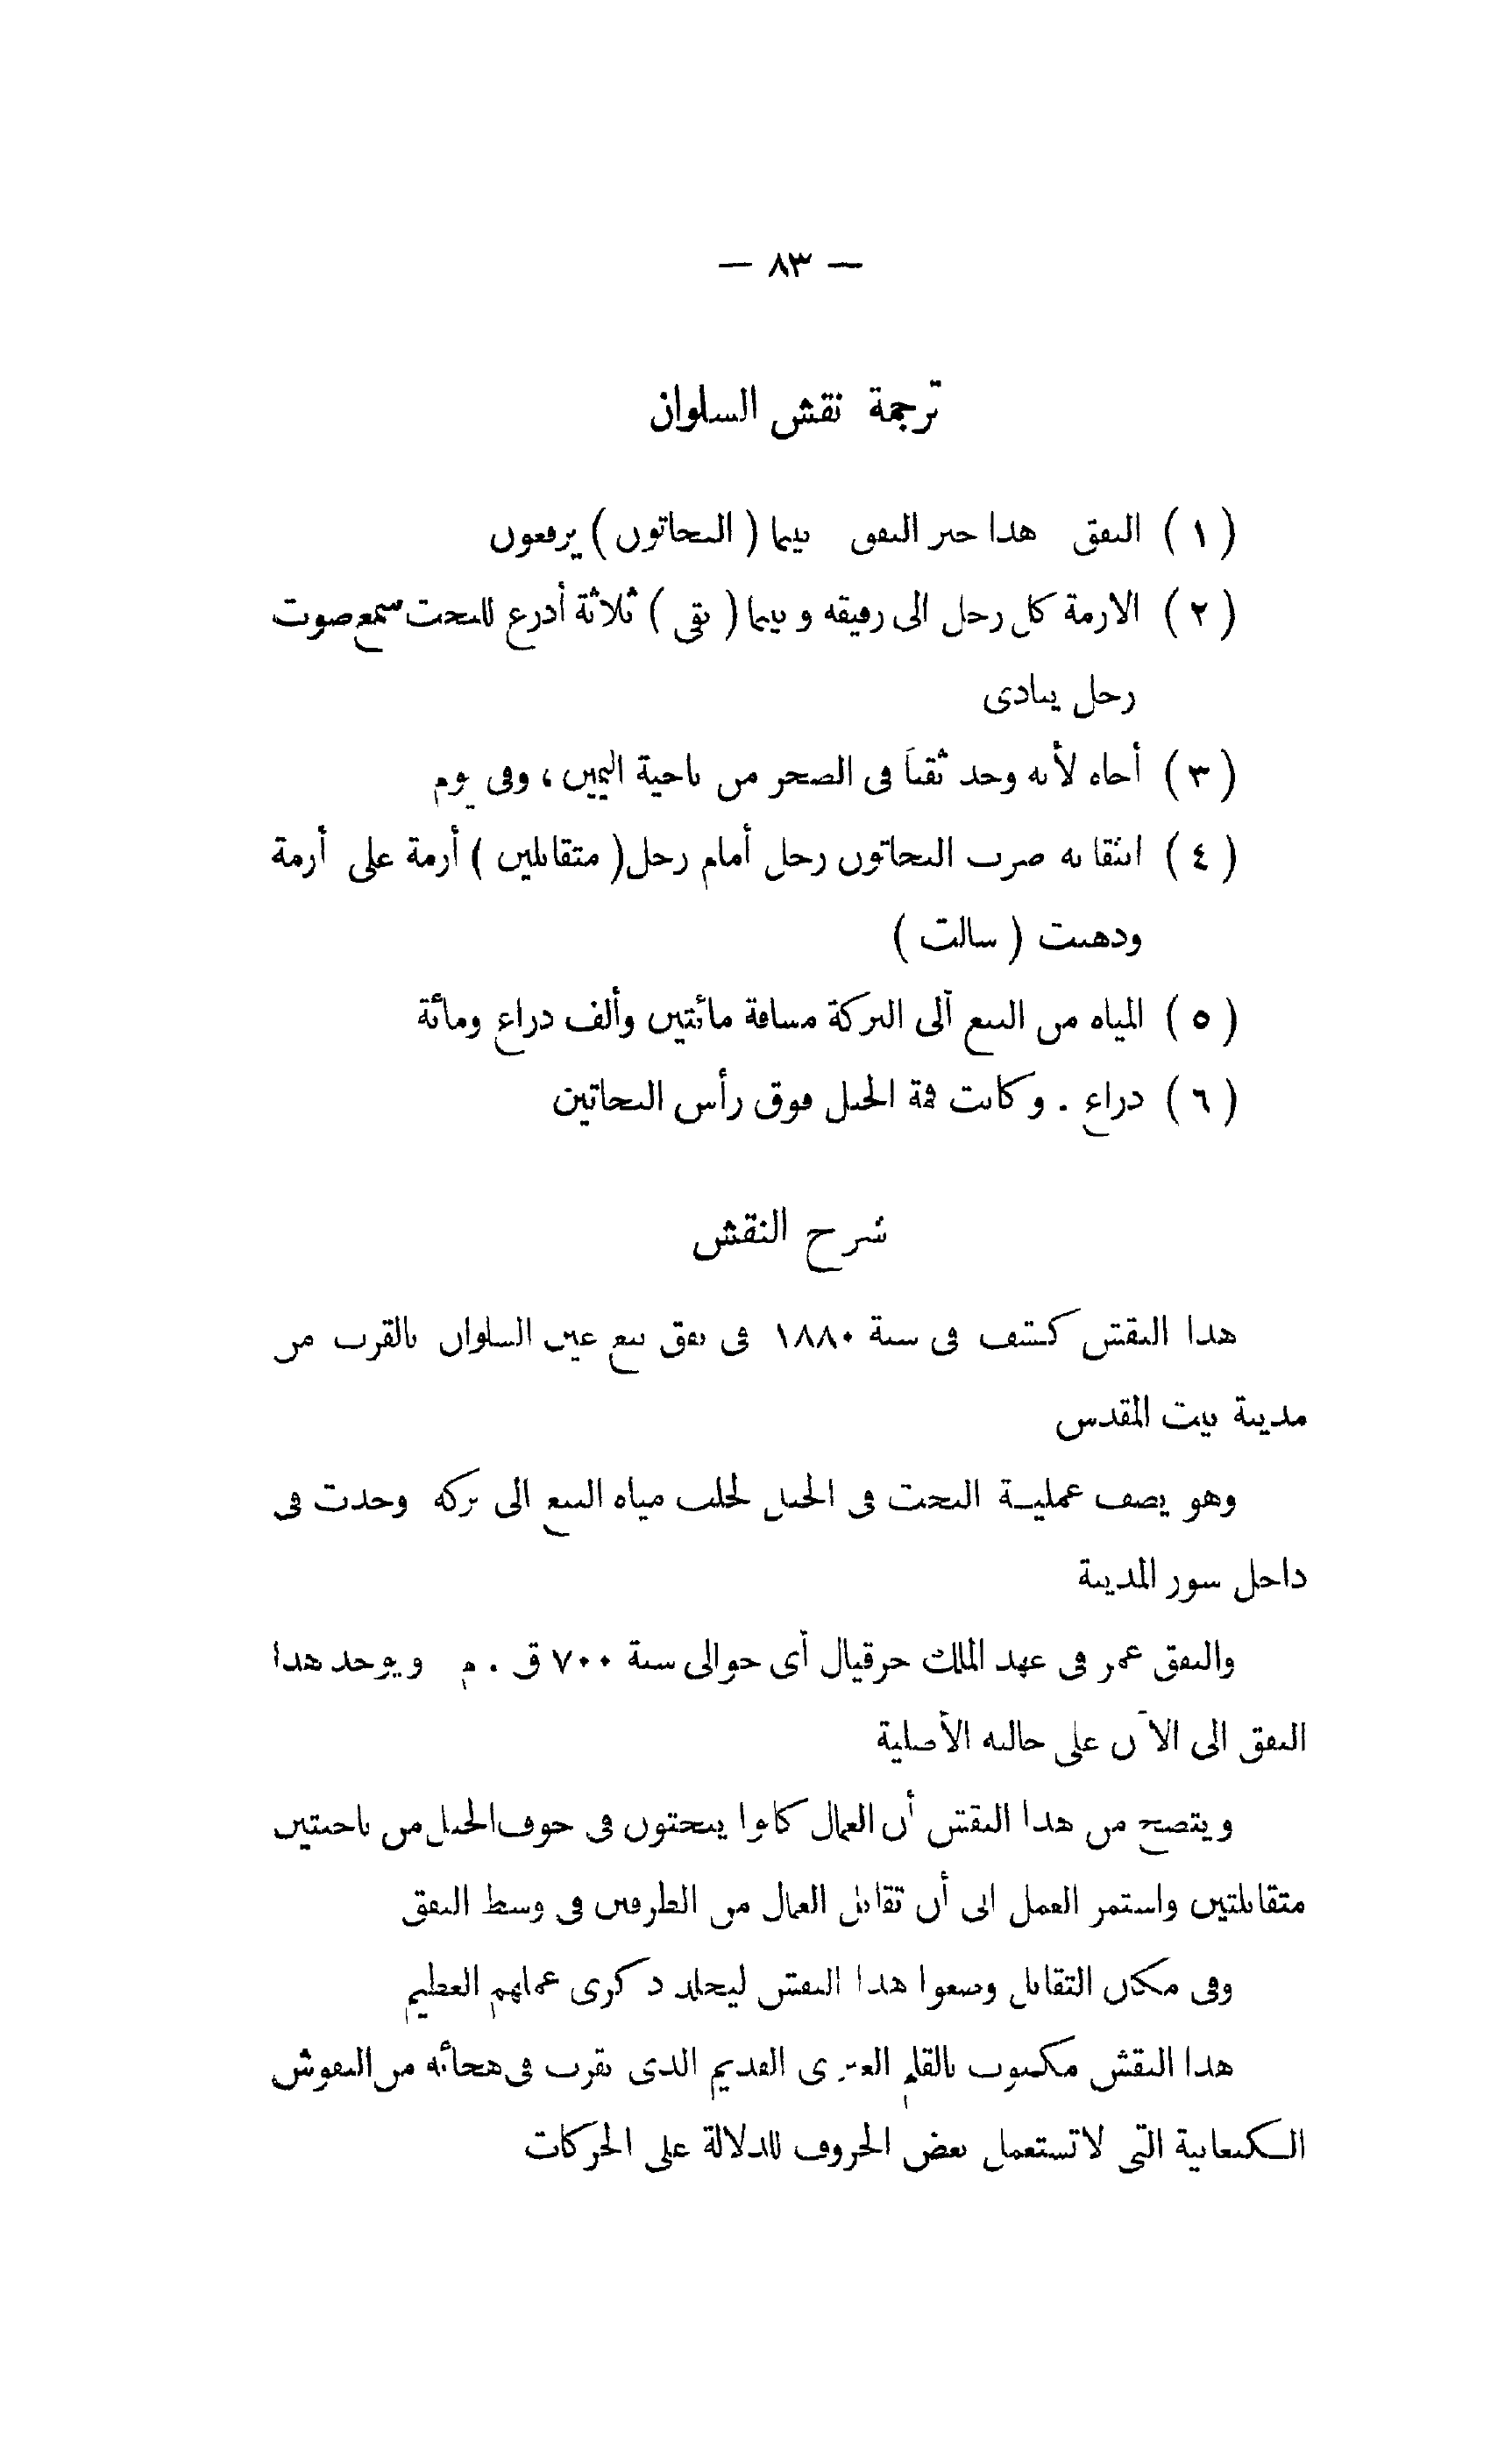 — ٨٣ —
ترجمة نقش السلوان
( ١ ) النفق هذا خبر النفق بينما ( النحاتون ) يرفعون
( ٢ ) الازمة كل رجل الى رفيقه و بينما ( بقى ) ثلاثة أذرع للنحت سمع صوت
رجل ينادى
( ٣ ) أخاه لأنه وجد ثقبا فى الصخر من ناحية اليمين ، وفى يوم
( ٤ ) انثقابه ضرب النحاتون رجل أمام رجل ( متقابلين ) أزمة على أزمة
وذهبت ( سالت )
( ٥ ) المياه من النبع ألى البركة مسافة مائتين وألف ذراع ومائة
( ٦ ) ذراع . وكانت قمة الجبل فوق رأس النحاتين
شرح النقش
هذا النقش كشف فى سنة ١٨٨٠ فى نفق نبع عين السلوان بالقرب من
مدينة بيت المقدس
وهو يصف عملية النحت فى الجبل لجلب مياه النبع الى بركة وجدت فى
داخل سور المدينة
والنفق عمر فى عهد الملك حزقيال أى حوالى سنة ٧٠٠ ق . م ويوجد هذا
النفق الى الآن على حالته الأصلية
ويتضح من هذا النقش أن العمال كانوا ينحتون فى جوف الجبل من ناحيتين
متقابلتين واستمر العمل الى أن تقابل العمال من الطرفين فى وسط النفق
وفى مكان التقابل وضعوا هذا النقش ليخلد ذكرى عملهم العظيم
هذا النقش مكتوب بالقلم العبرى القديم الذى يقرب فى هجائه من النقوش
الكنعانية التى لا تستعمل بعض الحروف للدلالة على الحركات